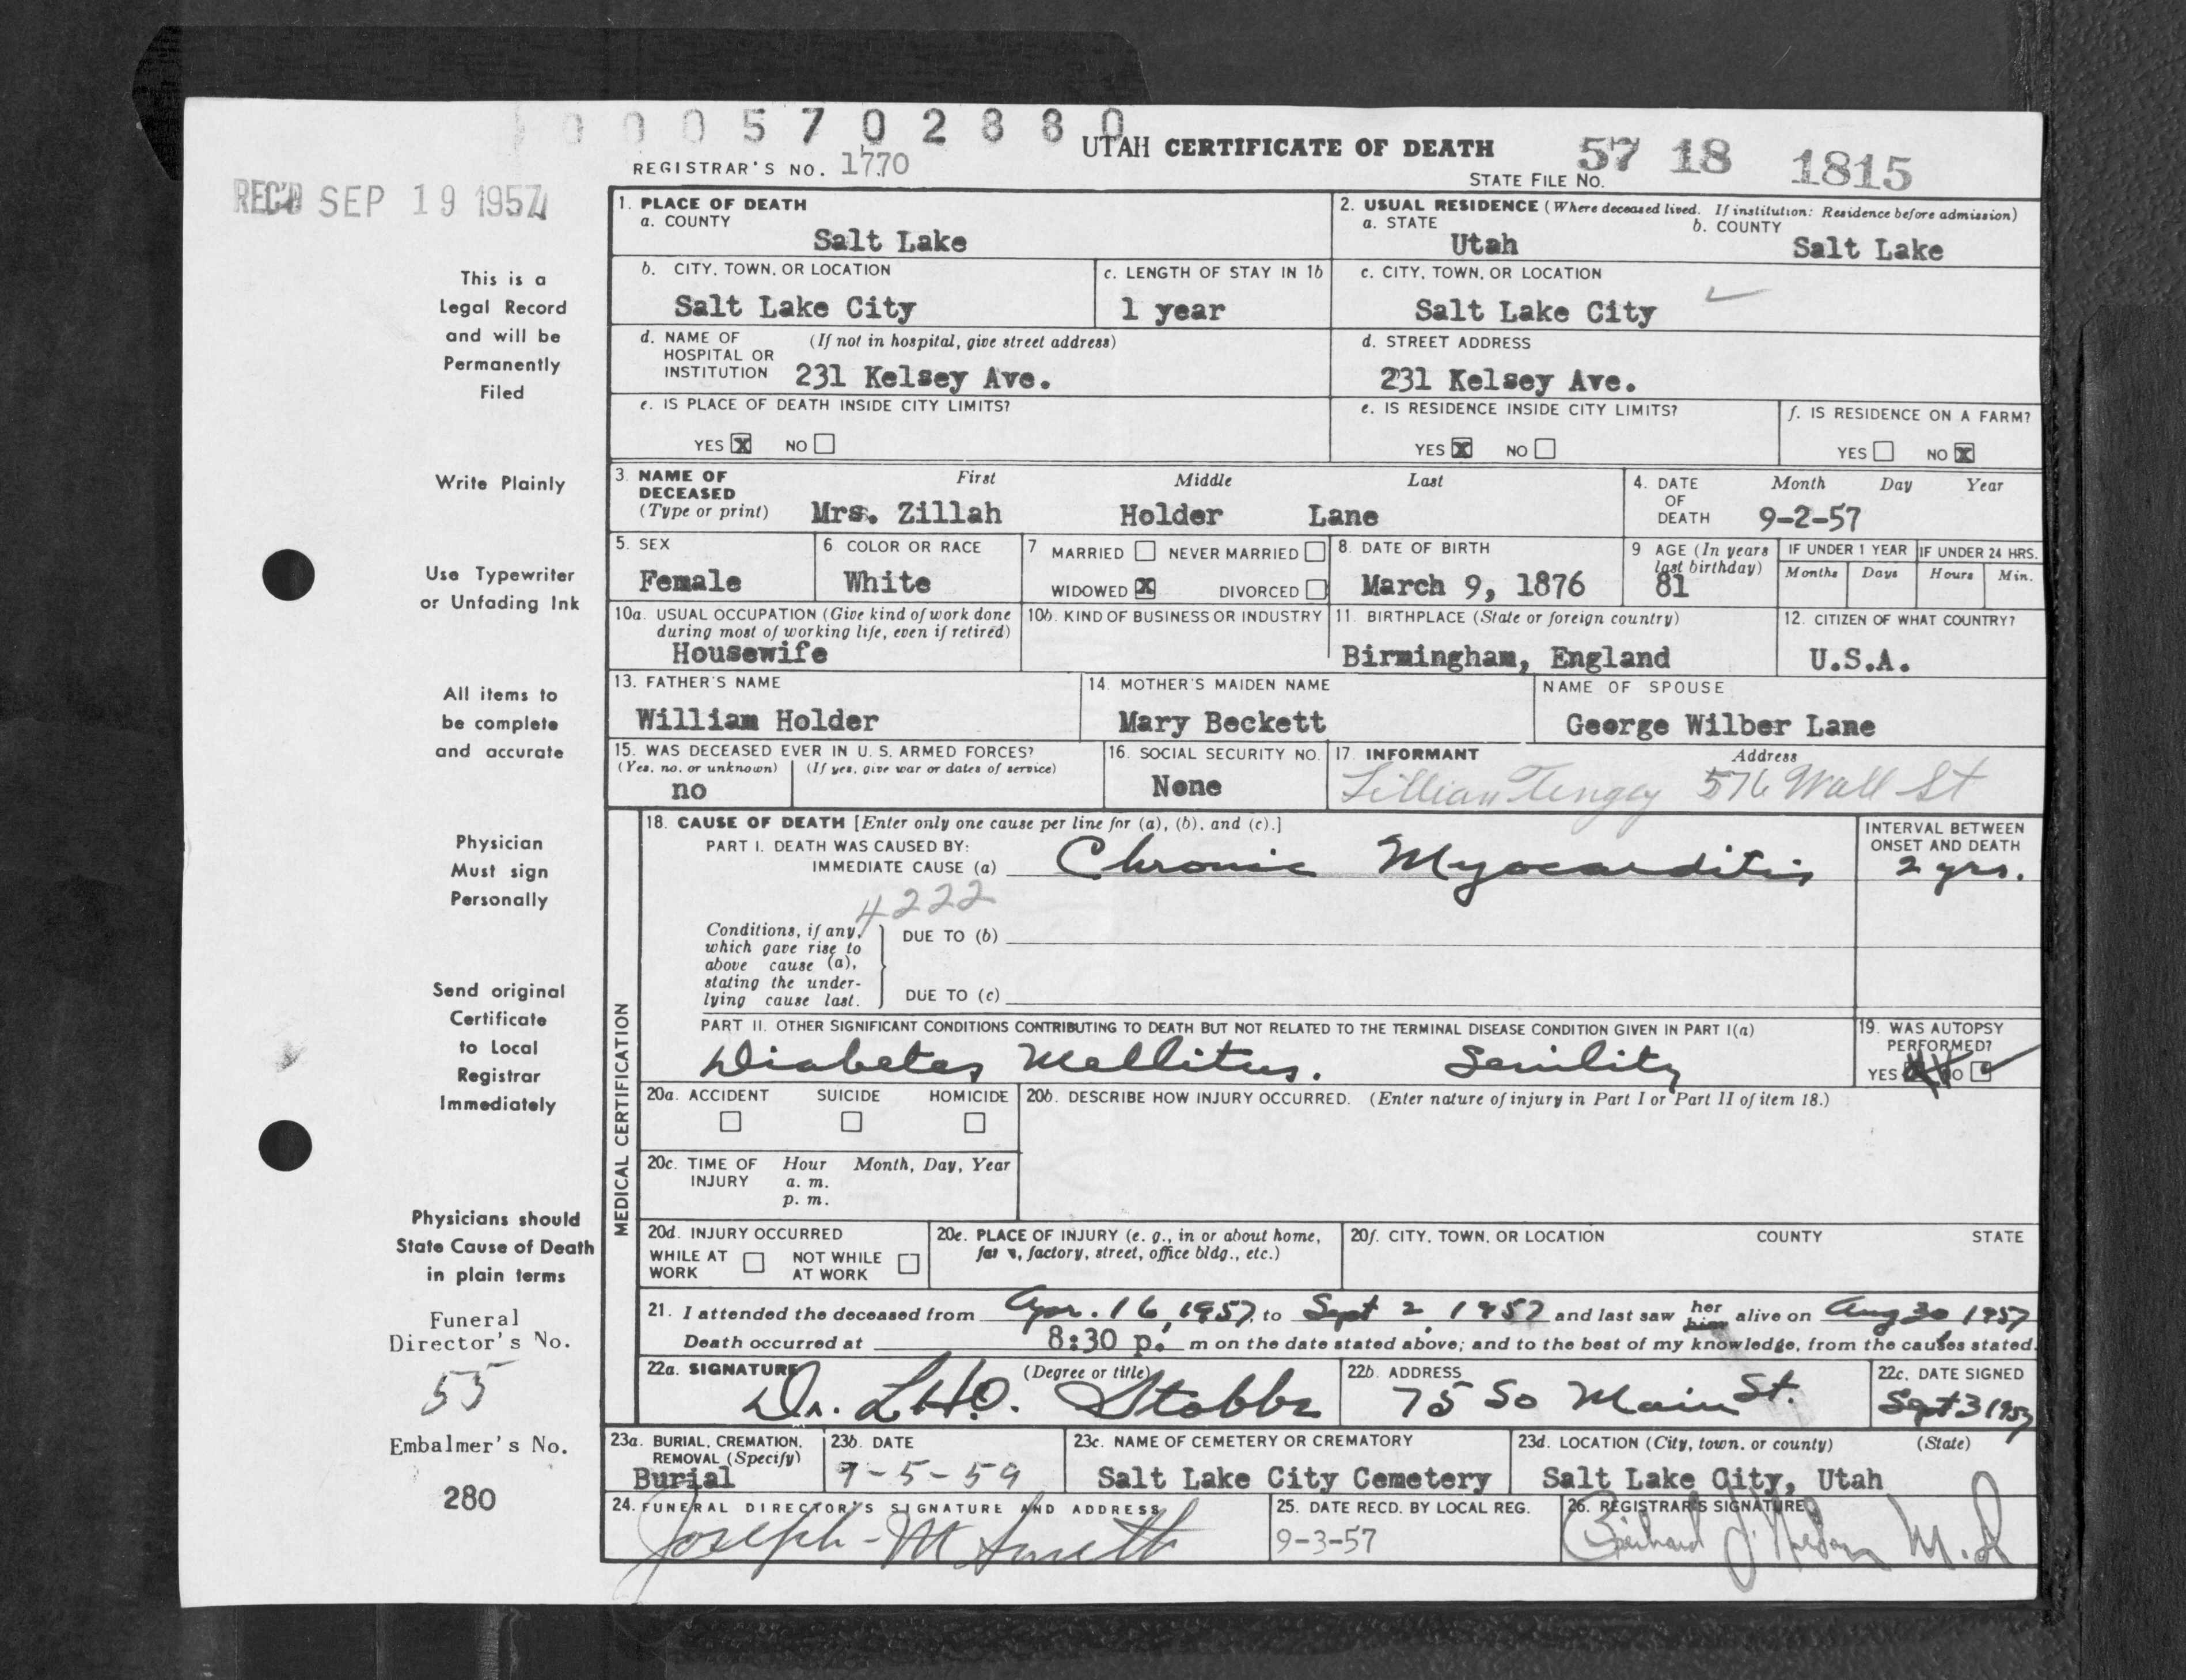 0 0 0 5 7 0 2 8 8 0
UTAH CERTIFICATE OF DEATH
REGISTRAR'S NO. 1770
STATE FILE NO. 57 18 1815
REC'D SEP 19 1957
This is a
Legal Record
and will be
Permanently
Filed
Write Plainly
Use Typewriter
or Unfading Ink
All items to
be complete
and accurate
Physician
Must sign
Personally
Send original
Certificate
to Local
Registrar
Immediately
Physicians should
State Cause of Death
in plain terms
Funeral
Director's No.
55
Embalmer's No.
280
1. PLACE OF DEATH
a. COUNTY
Salt Lake
2. USUAL RESIDENCE (Where deceased lived. If institution: Residence before admission)
a. STATE
Utah
b. COUNTY
Salt Lake
b. CITY, TOWN, OR LOCATION
Salt Lake City
c. LENGTH OF STAY IN 1b
1 year
c. CITY, TOWN, OR LOCATION
Salt Lake City
d. NAME OF (If not in hospital, give street address)
HOSPITAL OR
INSTITUTION 231 Kelsey Ave.
d. STREET ADDRESS
231 Kelsey Ave.
e. IS PLACE OF DEATH INSIDE CITY LIMITS?
YES X NO
e. IS RESIDENCE INSIDE CITY LIMITS?
YES X NO
f. IS RESIDENCE ON A FARM?
YES NO X
3. NAME OF First Middle Last
DECEASED
(Type or print) Mrs. Zillah Holder Lane
4. DATE Month Day Year
OF
DEATH 9-2-57
5. SEX
Female
6 COLOR OR RACE
White
7 MARRIED NEVER MARRIED
WIDOWED X DIVORCED
8. DATE OF BIRTH
March 9, 1876
9 AGE (In years
last birthday)
81
IF UNDER 1 YEAR
Months Days
IF UNDER 24 HRS.
Hours Min.
10a. USUAL OCCUPATION (Give kind of work done
during most of working life, even if retired)
Housewife
10b. KIND OF BUSINESS OR INDUSTRY
11. BIRTHPLACE (State or foreign country)
Birmingham, England
12. CITIZEN OF WHAT COUNTRY?
U.S.A.
13. FATHER'S NAME
William Holder
14. MOTHER'S MAIDEN NAME
Mary Beckett
NAME OF SPOUSE
George Wilber Lane
15. WAS DECEASED EVER IN U. S. ARMED FORCES?
(Yes, no, or unknown) (If yes, give war or dates of service)
no
16. SOCIAL SECURITY NO.
None
17. INFORMANT Address
Lillian Tingey 576 Wall St
MEDICAL CERTIFICATION
18. CAUSE OF DEATH [Enter only one cause per line for (a), (b), and (c).]
PART I. DEATH WAS CAUSED BY:
IMMEDIATE CAUSE (a) Chronic Myocarditis
INTERVAL BETWEEN
ONSET AND DEATH
2 yrs.
4222
Conditions, if any,
which gave rise to
above cause (a),
stating the under-
lying cause last.
DUE TO (b)
DUE TO (c)
PART II. OTHER SIGNIFICANT CONDITIONS CONTRIBUTING TO DEATH BUT NOT RELATED TO THE TERMINAL DISEASE CONDITION GIVEN IN PART I(a)
Diabetes Mellitus. Senility
19. WAS AUTOPSY
PERFORMED?
YES NO
20a. ACCIDENT SUICIDE HOMICIDE
20b. DESCRIBE HOW INJURY OCCURRED. (Enter nature of injury in Part I or Part II of item 18.)
20c. TIME OF Hour Month, Day, Year
INJURY a. m.
p. m.
20d. INJURY OCCURRED
WHILE AT NOT WHILE
WORK AT WORK
20e. PLACE OF INJURY (e. g., in or about home,
farm, factory, street, office bldg., etc.)
20f. CITY, TOWN, OR LOCATION COUNTY STATE
21. I attended the deceased from Apr. 16, 1957, to Sept 2, 1957 and last saw her him alive on Aug 30, 1957
Death occurred at 8:30 p. m on the date stated above; and to the best of my knowledge, from the causes stated.
22a. SIGNATURE (Degree or title)
Dr. L.H.O. Stobbe
22b. ADDRESS
75 So Main St.
22c. DATE SIGNED
Sept 3 1957
23a. BURIAL, CREMATION,
REMOVAL (Specify)
Burial
23b. DATE
9-5-59
23c. NAME OF CEMETERY OR CREMATORY
Salt Lake City Cemetery
23d. LOCATION (City, town, or county) (State)
Salt Lake City, Utah
24. FUNERAL DIRECTOR'S SIGNATURE AND ADDRESS
Joseph M Smith
25. DATE RECD. BY LOCAL REG.
9-3-57
26. REGISTRAR'S SIGNATURE
M.D